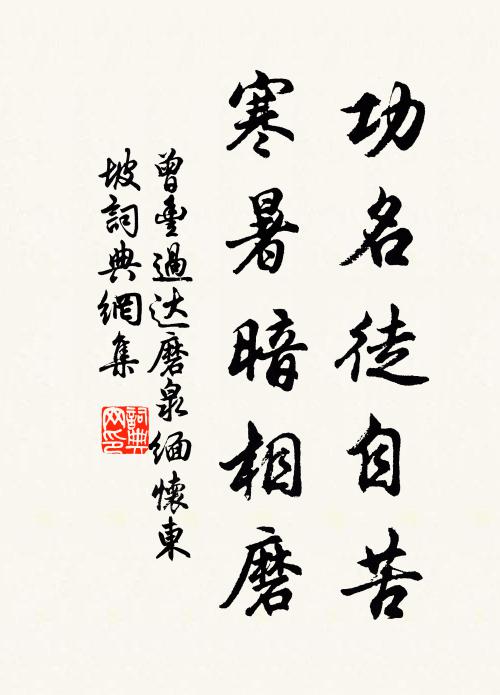 功名徒自苦
寒暑暗相磨
曾豊過达磨泉缅懷東
坡詞典網集
詞典网印